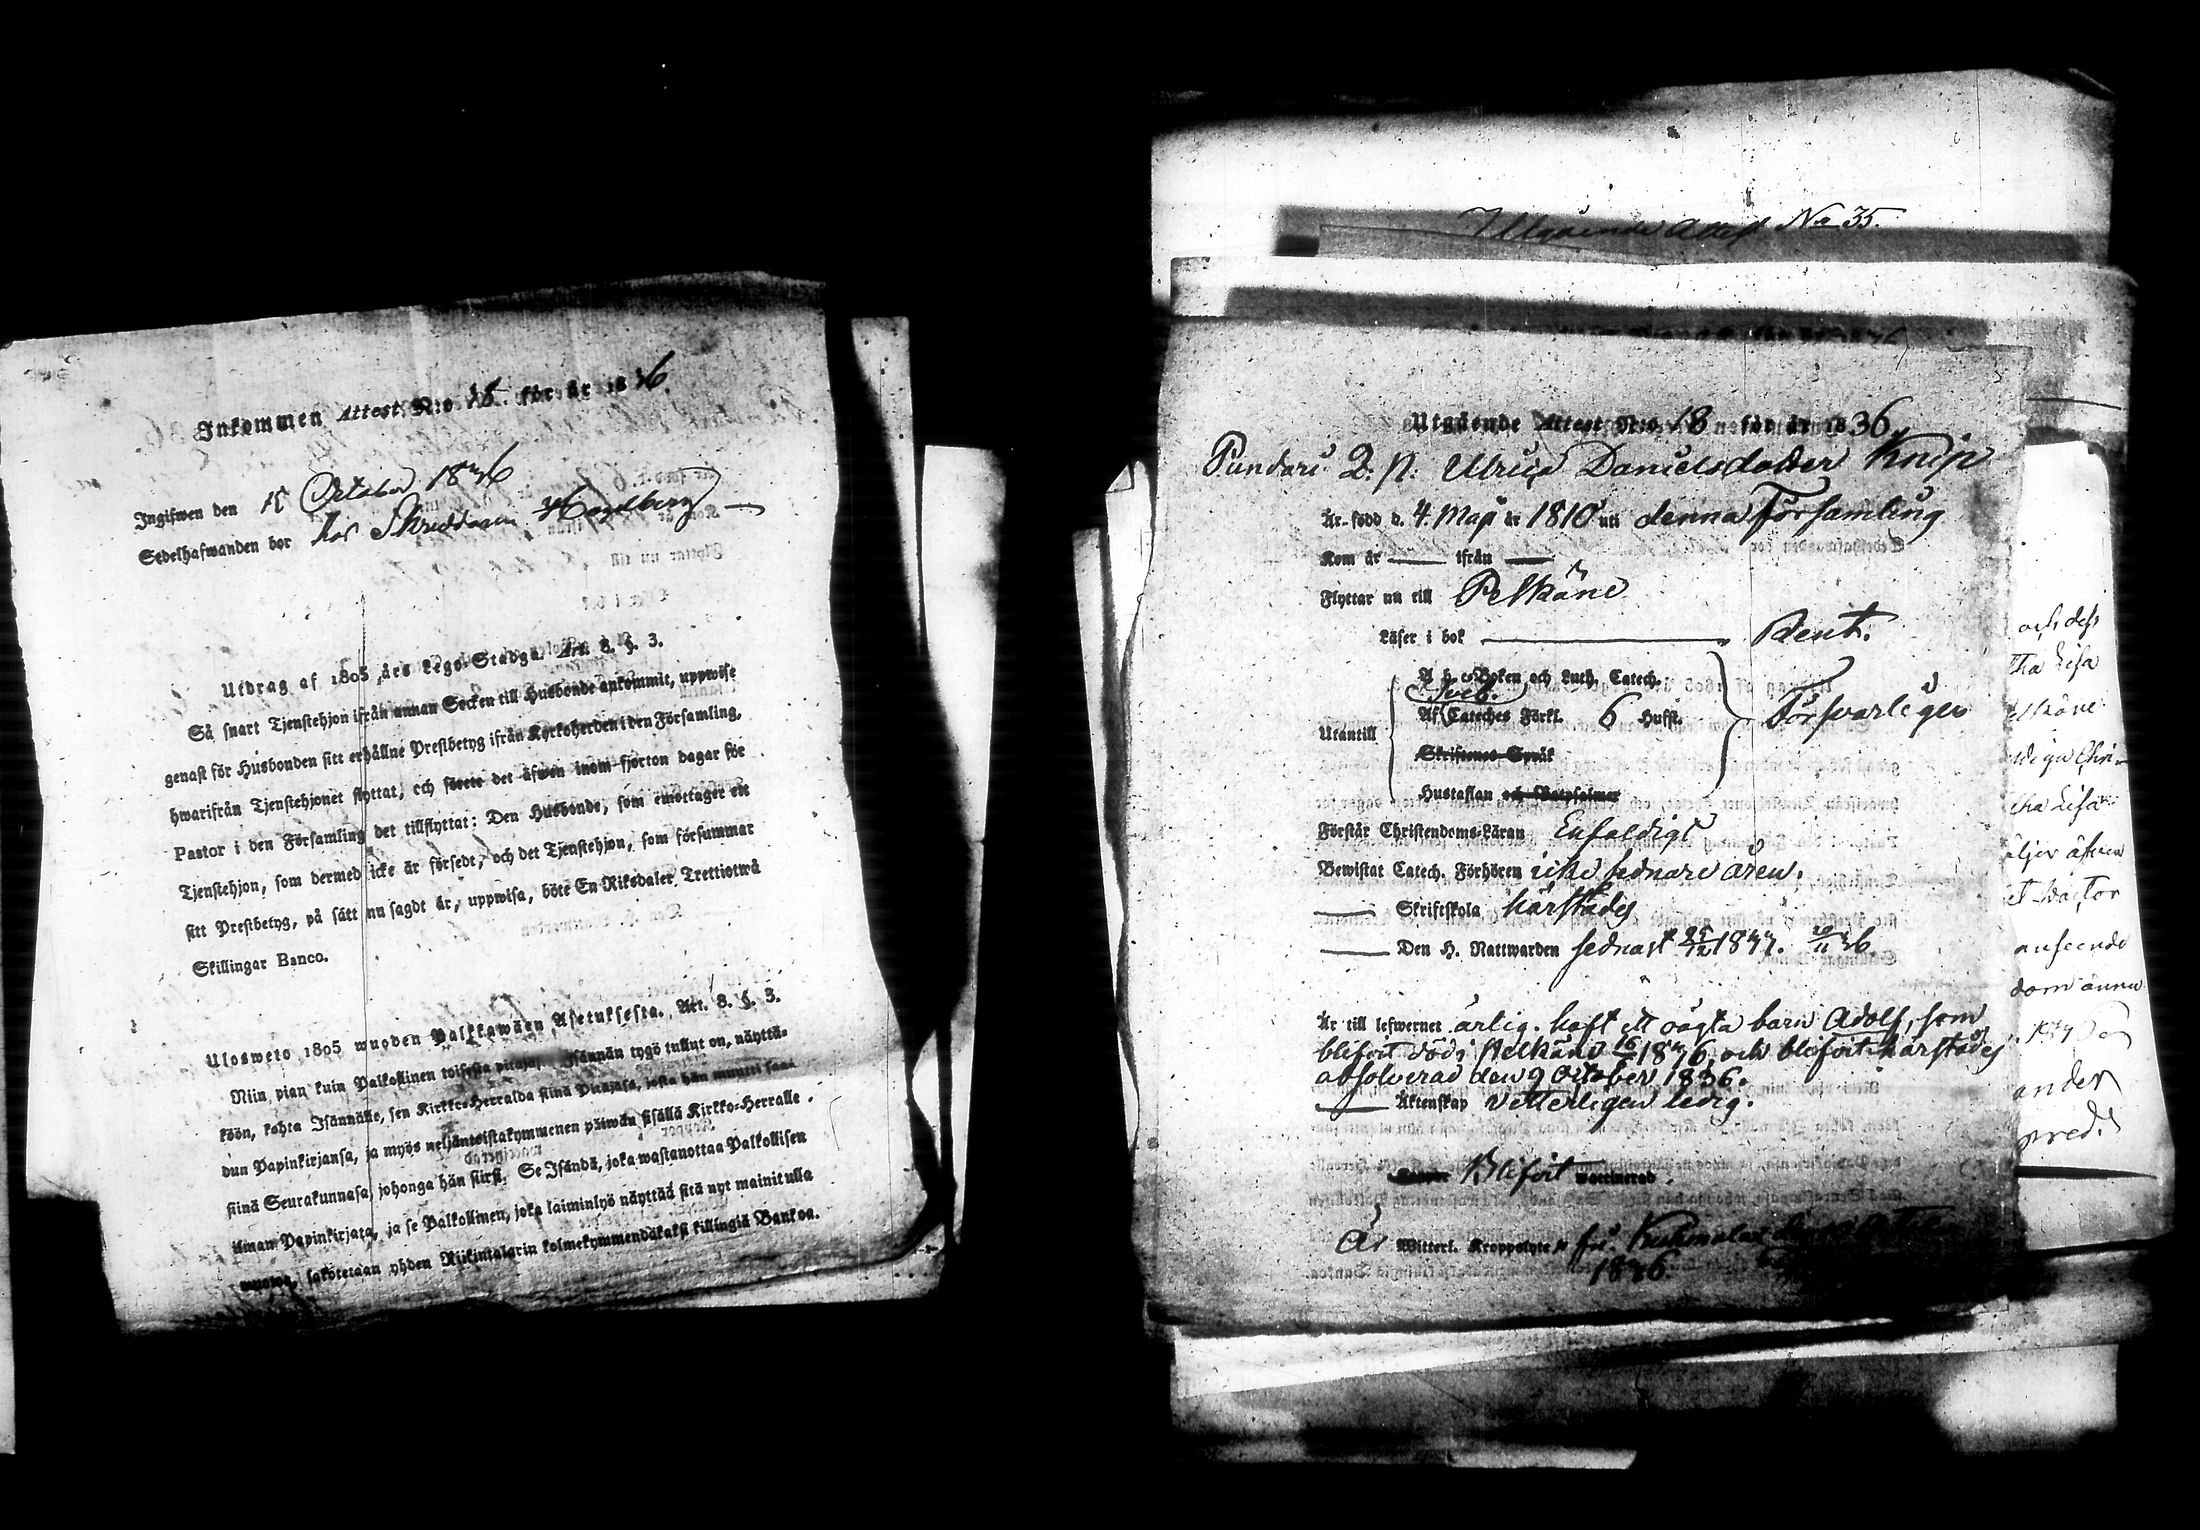 Inkommen Attest N:o 15. för år 1836.
Ingifwen den 15 October 1836
Sedelhafwanden bor hos Skräddaren Hagelberg
Utdrag af 1805 års Lego-Stadga. Art. 8. §. 3.
Så snart Tjenstehjon ifrån annan Socken till Husbonde ankommit, uppwise
genast för Husbonden sitt erhållne Prestbetyg ifrån Kyrkoherden i den Församling,
hwarifrån Tjenstehjonet flyttat, och förete det äfwen inom fjorton dagar för
Pastor i den Församling det tillflyttat: Den Husbonde, som emottager ett
Tjenstehjon, som dermed icke är försedt, och det Tjenstehjon, som försummar
sitt Prestbetyg, på sätt nu sagdt är, uppwisa, böte En Riksdaler Trettiotwå
Skillingar Banco.
Ulosweto 1805 wuoden Palkkawäen Asetuksesta. Art. 8. §. 3.
Niin pian kuin Palkollinen toisesta pitäjästä Isännän tygö tullut on, näyttä-
köön, kohta Isännälle, sen Kirkko-Herralda siinä Pitäjäsä, josta hän muutti saa-
dun Papinkirjansa, ja myös neljäntoistakymmenen päiwän sisällä Kirkko-Herralle
siinä Seurakunnasa, johonga hän siirsi. Se Isändä, joka wastanottaa Palkollisen
ilman Papinkirjata, ja se Palkollinen, joka laiminlyö näyttää sitä nyt mainitulla
muotoa, sakotetaan yhden Riikintalarin kolmekymmendäkaksi killingiä Bankoa.
Utgående Attest No 35.
Utgående Attest N:o 18 för år 1836
Pundari Q. P. Ulrica Danielsdotter Knip
Är född d. 4. Maji år 1810 uti denna Församling
Kom år — ifrån —
Flyttar nu till Pelkäne
Läser i bok — Rent.
A b c Boken och Luth. Catech.
Sveb.
Af Cateches Förkl. 6 Hufst.
Utantill Förswarligen
Skriftenes Språk
Hustaflan och Botpsalmer
Förstår Christendoms-Läran Enfaldigt
Bewistat Catech. Förhören icke sednare åren.
— Skriftskola härstädes
— Den H. Nattwarden sednast 25/12 1833. 20/11 36
Är till lefwernet ärlig. haft ett oägta barn Adolf, som
blifvit död i Pelkäne 16/ 1836, och blifvit härstädes
absolverad den 9 October 1836.
— Äktenskap vetterligen ledig.
Blifvit waccinerad.
Är Witterl. Kroppslyte fri. Kuhmalax
1836.
och dess
tha Lisa
elkäne
tha Lisa
äljer äfven
anseende
dom ännu
ander